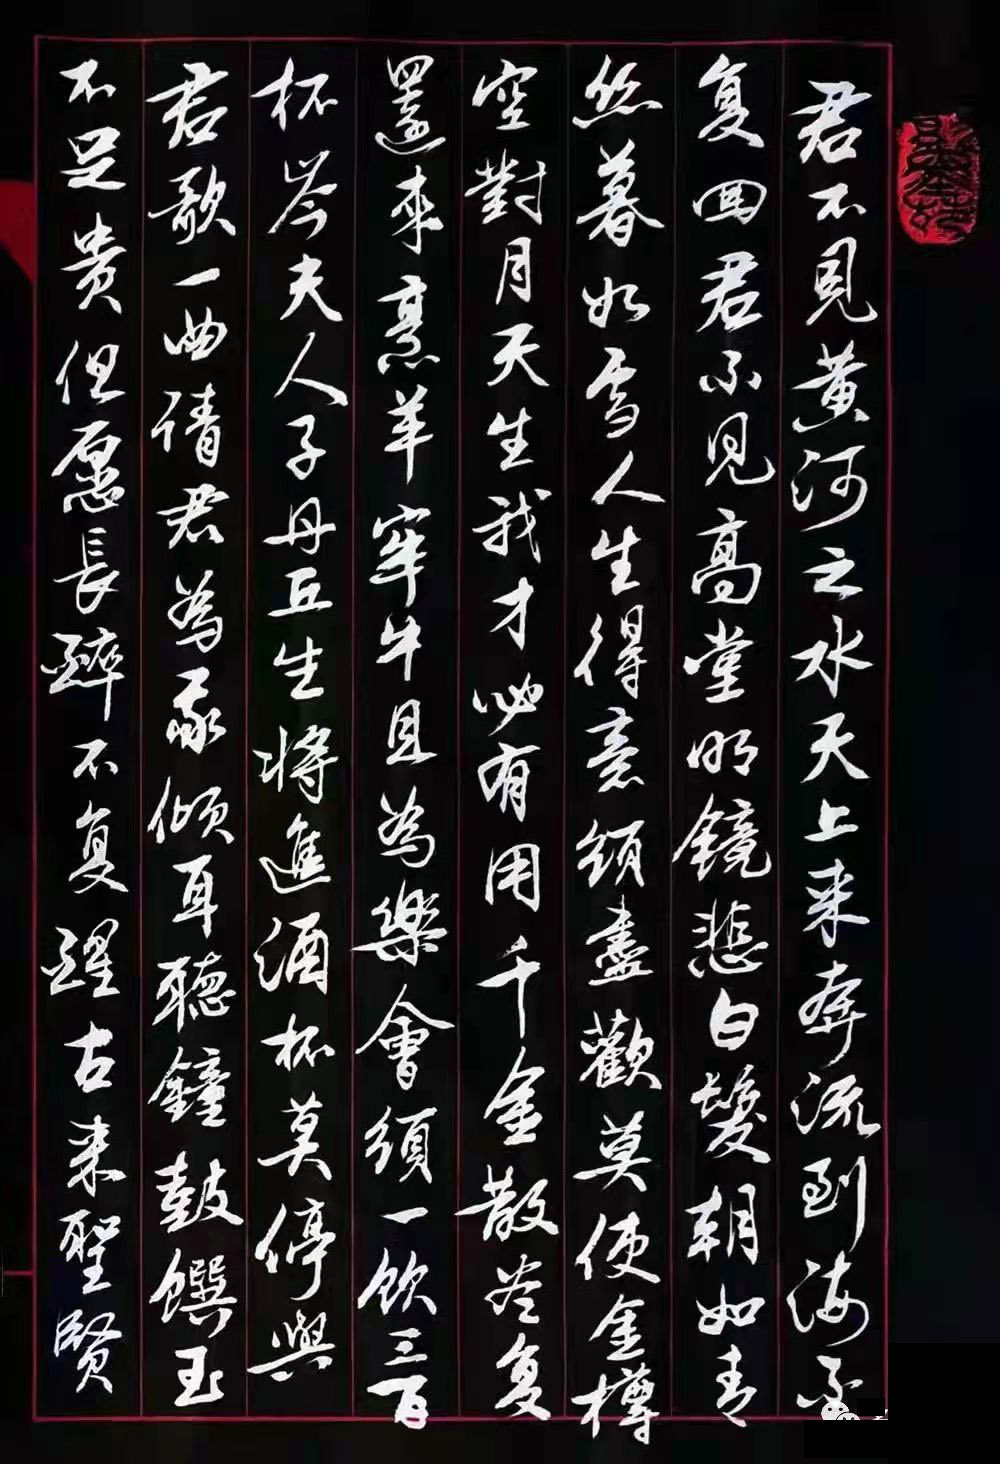 君不見黄河之水天上来奔流到海不
复回君不見高堂明鏡悲白髮朝如青
丝暮如雪人生得意須盡歡莫使金樽
空對月天生我才必有用千金散尽复
還来烹羊宰牛且為樂會須一飲三百
杯岑夫人子丹丘生将進酒杯莫停與
君歌一曲倩君為我傾耳聽鐘鼓饌玉
不足贵但愿長醉不复醒古来聖賢